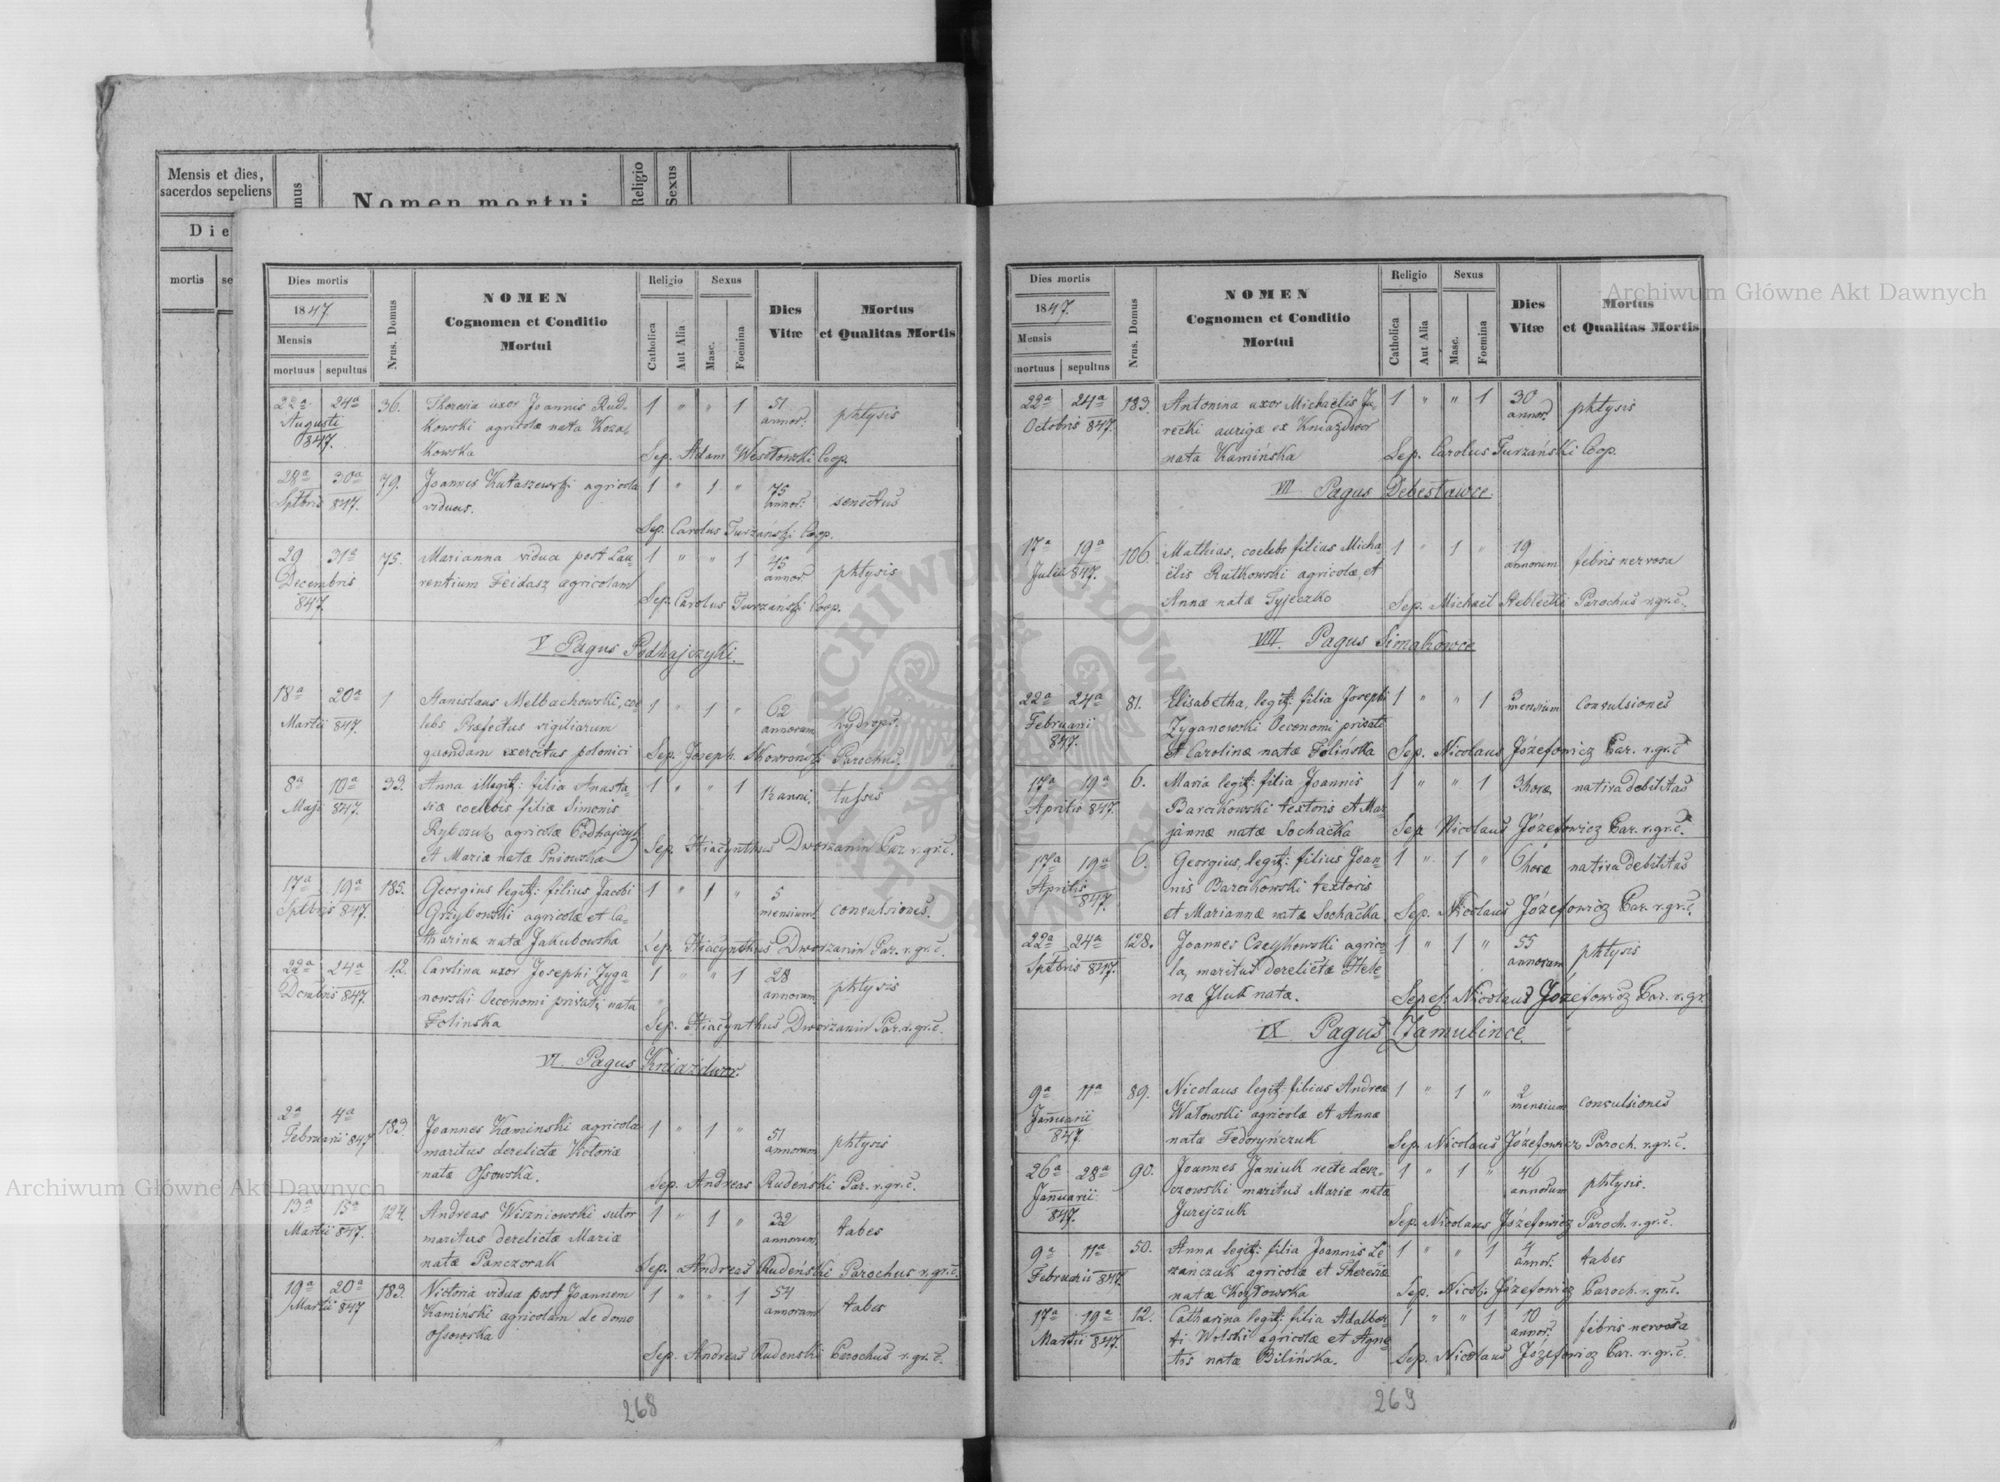 Mensis et dies,
sacerdos sepeliens
mus
Nomen mortui
Religio
Sexus
Die
mortis
se
Dies mortis
1847
Mensis
mortuus sepultus
Nrus. Domus
NOMEN
Cognomen et Conditio
Mortui
Religio
Catholica
Aut Alia
Sexus
Masc.
Foemina
Dies
Vitæ
Mortus
et Qualitas Mortis
22a 24a 36. Theresia uxor Joannis Rud- 1 " " 1 51 phtysis
Augusti kowski agricolæ nata Kozal annor.
847. kowska Sep. Adam Wesołowski Coop.
28a 30a 79. Joannes Kułaszewski agricola 1 " 1 " 75 senectus
Sptbris 847. viduus. annor.
Sep. Carolus Turzański Coop.
29 31a 75. Marianna vidua post Lau- 1 " " 1 45 phtysis
Decembris rentium Feidasz agricolam annor.
847. Sep. Carolus Turzański Coop.
V Pagus Podhajczyki.
18a 20a 1 Stanislaus Melbachowski, coe- 1 " 1 " 62 hydrops.
Martii 847. lebs Præfectus vigiliarum annorum
quondam exercitus polonici Sep. Joseph. Skowroński Parochus.
8a 10a 33. Anna illegit: filia Anasta- 1 " " 1 1½ anni. tusses
Maji 847. siæ coelebis filiæ Simonis
Rybczuk agricolæ Podhajczyk
et Mariæ natæ Pniowska Sep. Hiacynthus Dworzanin Par. r. gr. c.
17a 19a 185. Georgius legit: filius Jacobi 1 " 1 " 5 convulsiones.
Sptbris 847. Grzybowski agricolæ et Ca- mensium
tharinæ natæ Jakubowska Sep. Hiacynthus Dworzanin Par. r. gr. c.
22a 24a 12. Carolina uxor Josephi Zyga- 1 " " 1 28 phtysis
Dcmbris 847. nowski Oeconomi privati, nata annorum
Folinska Sep. Hiacynthus Dworzanin Par. r. gr. c.
VI. Pagus Kniazdwor.
2a 4a 183. Joannes Kaminski agricola 1 " 1 " 51 phtysis
Februarii 847 maritus derelictæ Victoriæ annorum
natæ Ossowska. Sep. Andreas Rudeński Par. r. gr. c.
13a 15a 124. Andreas Wiszniowski sutor 1 " 1 " 32 tabes
Martii 847. maritus derelictæ Mariæ annorum
natæ Panczorak Sep. Andreas Rudeński Parochus r. gr. c.
19a 20a 183. Victoria vidua post Joannem 1 " " 1 54 tabes
Martii 847 Kamiński agricolam de domo annorum
Ossowska
Sep. Andreas Rudenski Parochus r. gr. c.
268
Dies mortis
1847.
Mensis
mortuus sepultus
Nrus. Domus
NOMEN
Cognomen et Conditio
Mortui
Religio
Catholica
Aut Alia
Sexus
Masc.
Foemina
Dies
Vitæ
Mortus
et Qualitas Mortis
22a 24a 183. Antonina uxor Michaëlis Ja- 1 " " 1 30 phtysis
Octobris 847. recki aurigæ ex Kniazdwor annor.
nata Kamińska Sep. Carolus Turzański Coop.
VII Pagus Debesławce.
17a 19a 106. Mathias, coelebs filius Micha 1 " 1 " 19 febris nervosa
Julii 847. ëlis Rutkowski agricolæ, et annorum
Annæ natæ Tyjeczko Sep. Michaël Stebłecki Parochus r. gr. c.
VIII. Pagus Simakowce
22a 24a 81. Elisabetha, legit: filia Josephi 1 " " 1 3 convulsiones
Februarii Zyganowski Oeconomi privati mensium
847. et Carolinæ natæ Folińska Sep. Nicolaus Józefowicz Par. r. gr. c.
17a 19a 6. Maria legit: filia Joannis 1 " " 1 3 horæ nativa debilitas
Aprilis 847. Barcikowski textoris et Mar-
jannæ natæ Sochacka Sep. Nicolaus Józefowicz Par. r. gr. c.
17a 19a 6. Georgius, legit: filius Joan- 1 " 1 " 6 horæ nativa debilitas
Aprilis nis Barcikowski textoris
847. et Mariannæ natæ Sochacka Sep. Nicolaus Józefowicz Par. r. gr. c.
22a 24a 128. Joannes Czeykowski agrico- 1 " 1 " 55 phtysis
Sptbris 847. la, maritus derelictæ Hele- annorum
næ Iluk natæ. Sepel. Nicolaus Józefowicz Par. r. gr.
IX Pagus Zamulince.
9a 11a 89. Nicolaus legit: filius Andreæ 1 " 1 " 2 convulsiones
Januarii Watowski agricolæ et Annæ mensium
847. natæ Fedoryńczuk Sep. Nicolaus Józefowicz Paroch. r. gr. c.
26a 28a 90. Joannes Janiuk recte Lesz- 1 " 1 " 46 phtysis.
Januarii czowski maritus Mariæ natæ annorum
847. Jurejczuk Sep. Nicolaus Józefowicz Paroch. r. gr. c.
9a 11a 50. Anna legit: filia Joannis Le 1 " " 1 4 tabes
Februarii 847. szańczuk agricolæ et Theresiæ annor.
natæ Kozłowska Sep. Nicol. Józefowicz Paroch. r. gr. c.
17a 19a 12. Catharina legit: filia Adalber- 1 " " 1 10 febris nervosa
Martii 847. ti Wolski agricolæ et Agne- annor.
tis natæ Bilińska. Sep. Nicolaus Józefowicz Par. r. gr. c.
269
Archiwum Główne Akt Dawnych
Archiwum Główne Akt Dawnych
ARCHIWUM GŁÓWNE AKT DAWNYCH